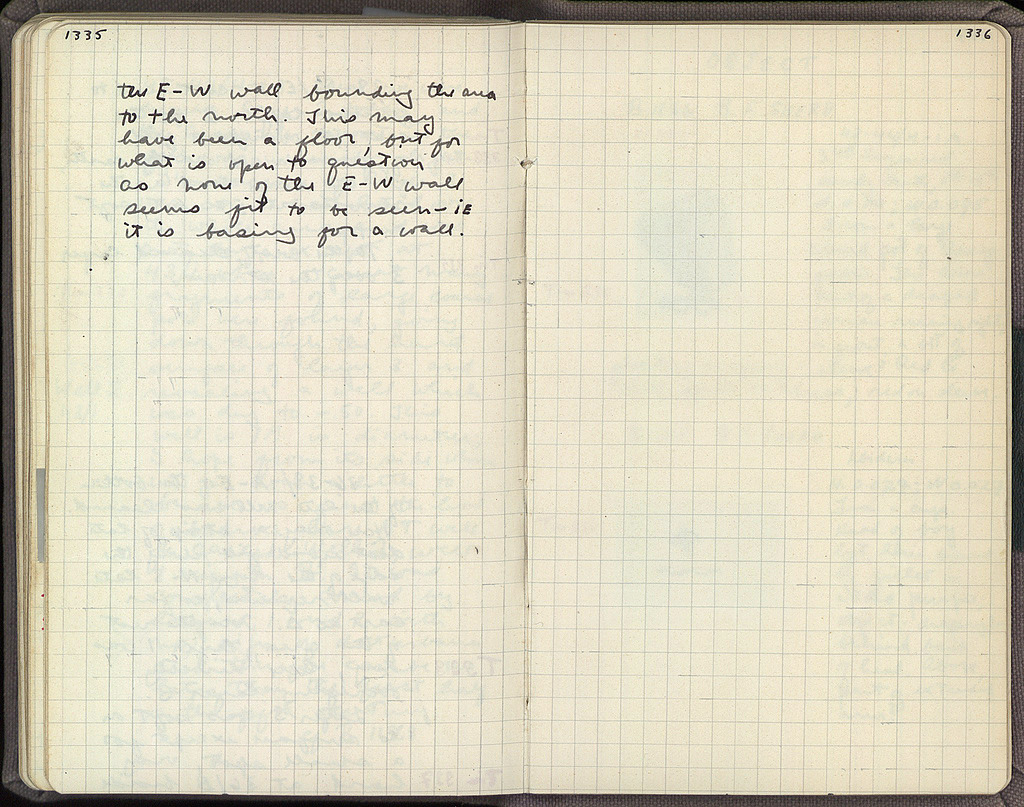 1335
1336
the E-W wall bounding the area
to the north. This may
have been a floor, but for
what is open to question
as none of the E-W wall
seems fit to be seen - iE
it is basing for a wall.